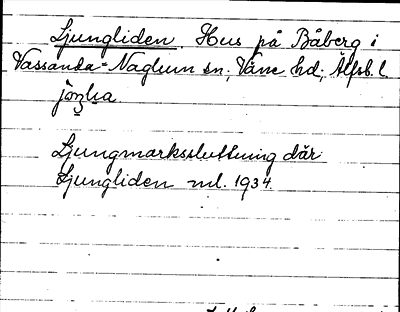 Ljungliden. Hus på Båberg i
Vassanda-Naglum sn; Väne hd; Älfsb. l
Ljungmarkssluttning där
Ljungliden ml. 1934